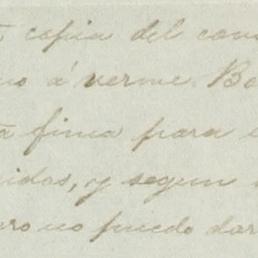 copia del con
no á verme. Bo
finca para e
idos, y segun
ro no puedo dar